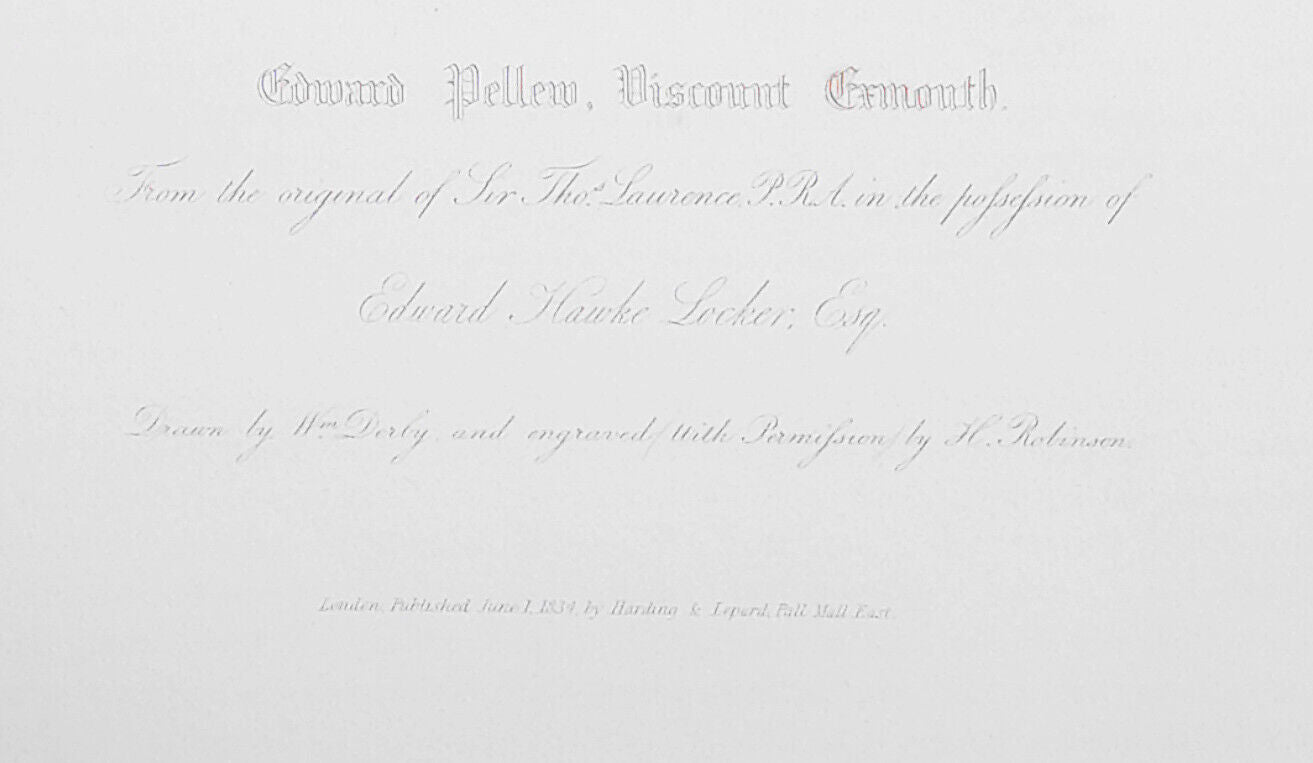 Edward Pellew, Viscount Exmouth.
From the original of Sir Thos. Laurence, P.R.A. in the poſseſsion of
Edward Hawke Locker, Esq.
Drawn by Wm. Derby, and engraved (with Permiſsion) by H. Robinson.
London, Published June 1, 1834, by Harding & Lepard, Pall Mall East.